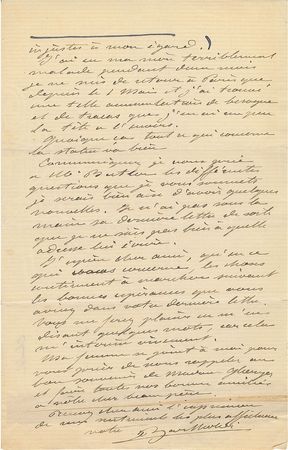 injustes à mon égard.)
J'ai eu ma mère terriblement
malade pendant deux mois
je ne suis de retour à Paris que
depuis le 1 Mai et j'ai trouvé
une telle accumulation de besogne
et de tracas que j'en ai un peu
la tête à l'envers.
Quoique ça tout ce qui concerne
la statue va bien
Communiquez je vous prie
à Mr Butler les différentes
questions que je vous soumets
je serais bien aise d'avoir quelques
nouvelles. Je n'ai pas sous la
main sa dernière lettre de sorte
que je ne sais pas bien à quelle
adresse lui écrire.
J'espère cher ami, qu'en ce
qui vous concerne, les choses
continuent à marcher suivant
les bonnes espérances que vous
aviez dans votre dernière lettre.
Vous me ferez plaisir en m'en
disant quelques mots, car cela
m'intéresse vivement.
Ma femme se joint à moi pour
vous prier de nous rappeler au
bon souvenir de Madame
et faire toutes nos bonnes amitiés
à votre cher beau père.
Recevez cher ami l'expression
de mes sentiments les plus affectueux
votre